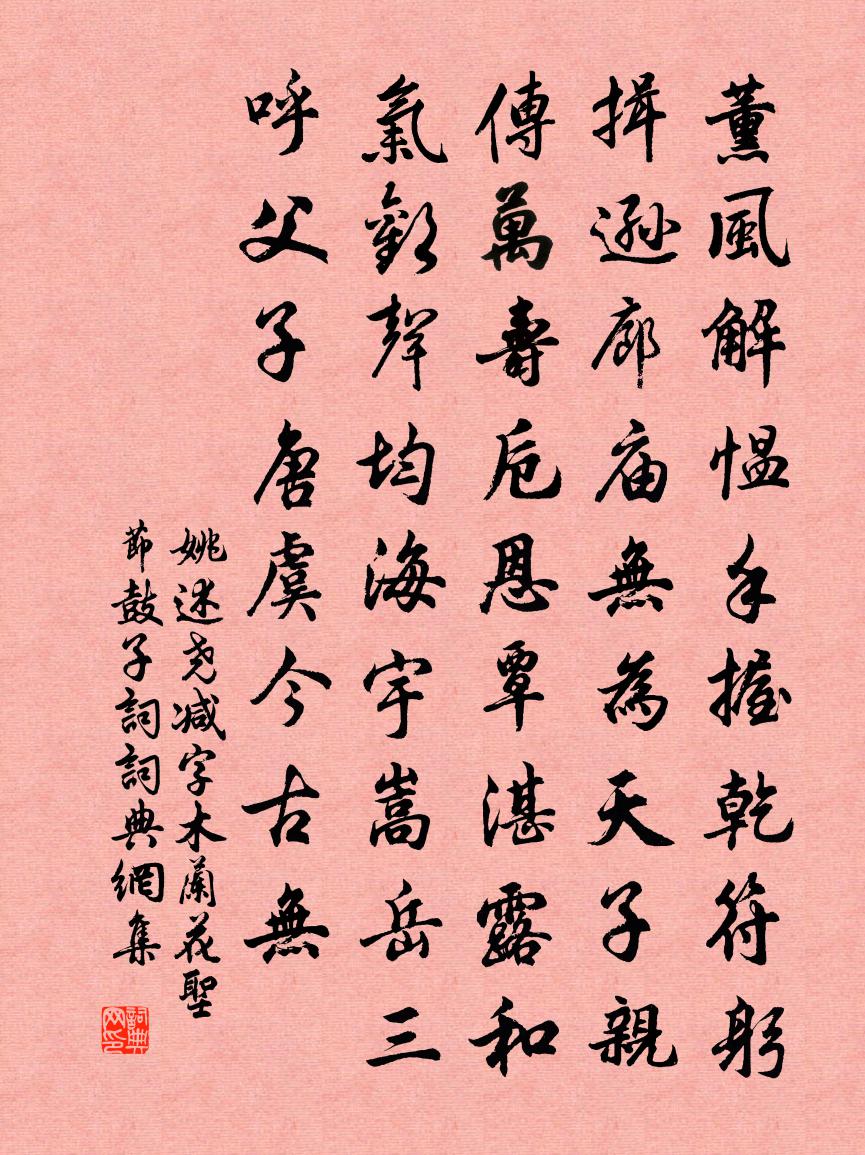 薰風解慍手握乾符躬
揖遜廊庙無為天子親
傳萬壽卮恩覃湛露和
氣歡聲均海宇嵩岳三
呼父子唐虞今古無
姚述尧减字木蘭花聖
節鼓子詞詞典網集
詞典网印